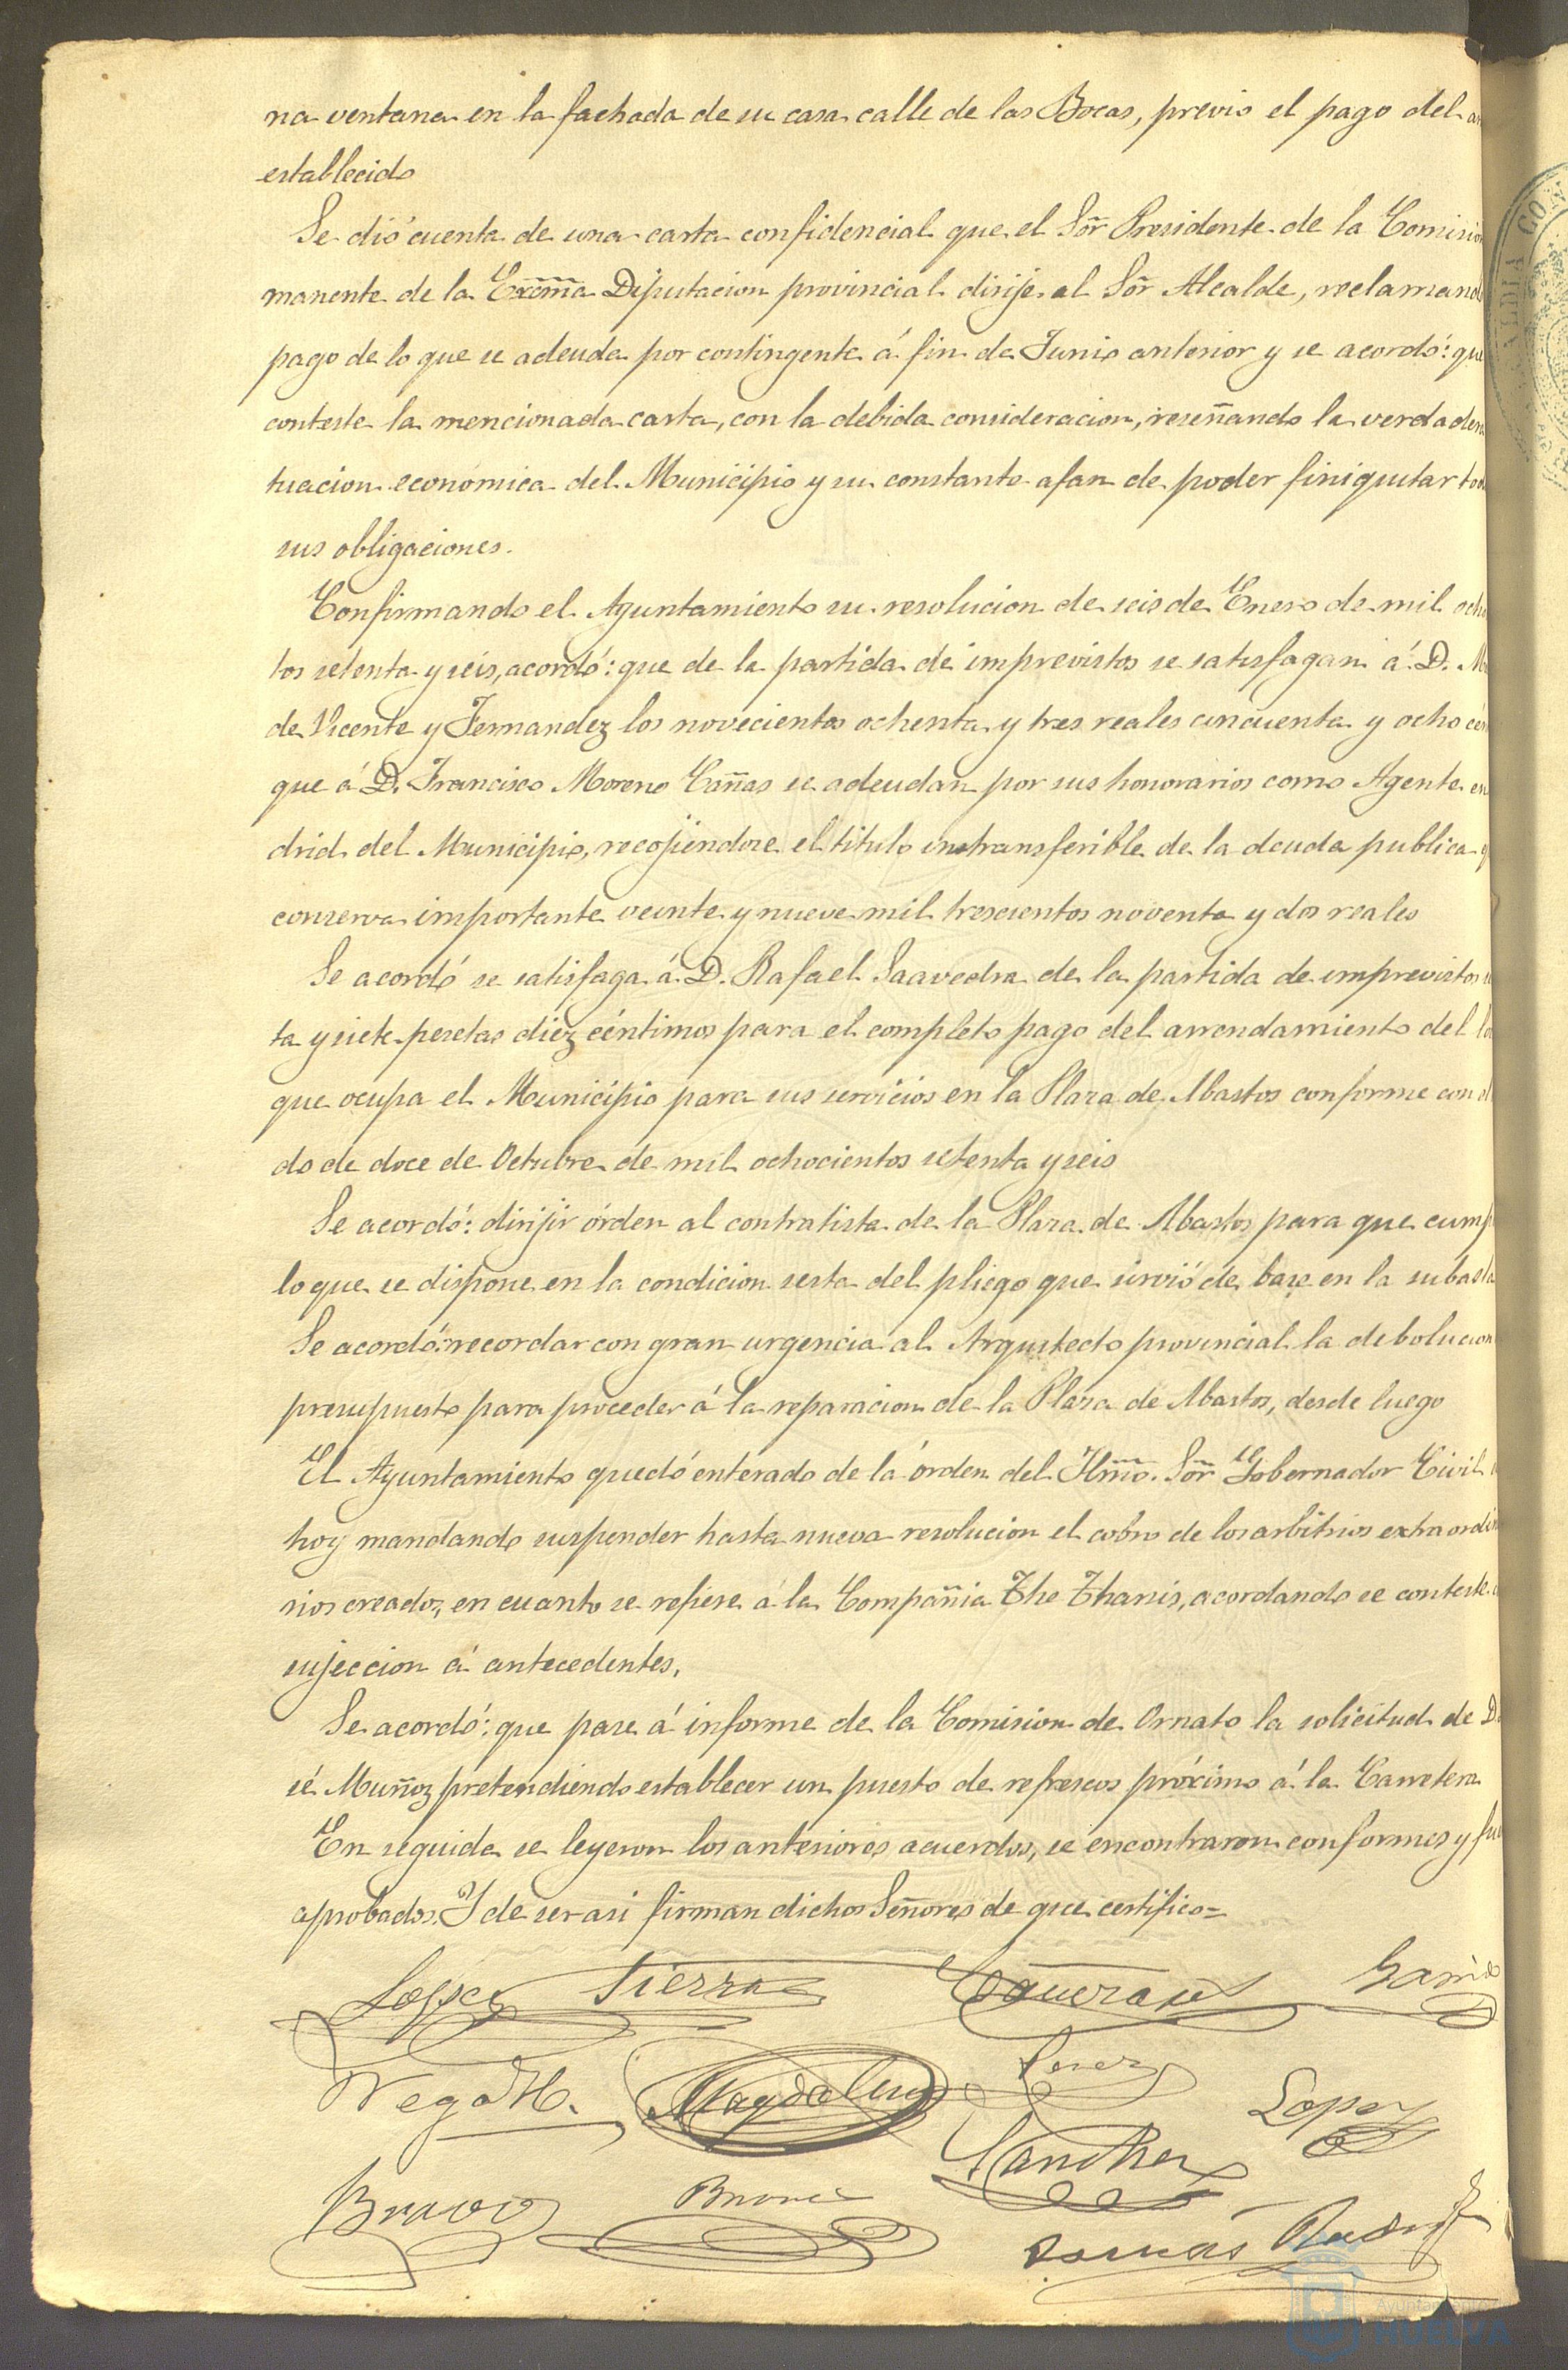 na ventana en la fachada de su casa calle de las Bocas, previo el pago del
establecido
Se dió cuenta de una carta confidencial que el Sõr Presidente de la Comision
manente de la Excm̃a Diputacion provincial dirije al Sõr Alcalde, reclamand
pago de lo que se adeuda por contingente á fin de Junio anterior y se acordó: que
conteste la mencionada carta, con la debida consideracion, reseñando la verdader
tuacion económica del Municipio y su constante afan de poder finiquitar tod
sus obligaciones.
Confirmando el Ayuntamiento su resolucion de seis de Enero de mil ocho
tos setenta y seis, acordó: que de la partida de imprevistos se satisfagan á D. M
de Vicente y Fernandez los novecientos ochenta y tres reales cincuenta y ocho cen
que á D. Francisco Moreno Cañas se adeudan por sus honorarios como Agente en
drid del Municipio, recojiendose el titulo instransferible de la deuda publica q
conserva importante veinte y nueve mil trescientos noventa y dos reales
Se acordó se satisfaga á D. Rafael Saavedra de la partida de imprevistos
ta y siete pesetas diez céntimos para el completo pago del arrendamiento del lo
que ocupa el Municipio para sus servicios en la Plaza de Abastos conforme con
do de doce de Octubre de mil ochocientos setenta y seis
Se acordó: dirijir órden al contratista de la Plaza de Abastos para que cump
lo que se dispone en la condicion sesta del pliego que sirvió de base en la subasta
Se acordó: recordar con gran urgencia al Arquitecto provincial la debolucion
presupuesto para proceder á la reparacion de la Plaza de Abastos, desde luego
El Ayuntamiento quedó enterado de la órden del Ilm̃o. Sõr Gobernador Civil
hoy mandando suspender hasta nueva resolucion el cobro de los arbitrios extraordin
rios creados, en cuanto se refiere á la Compañia The Tharsis, acordando se conteste
sujeccion á antecedentes.
Se acordó: que pase á informe de la Comision de Ornato la solicitud de D.
sé Muñoz pretendiendo establecer un puesto de refrescos próximo á la Carretera
En seguida se leyeron los anteriores acuerdos, se encontraron conformes y fue
aprobados. Y de ser asi firman dichos Señores de que certifico=
Lopez Tierra Garrido
Vega H. Magdalena Perez Lopez
Bravo Sanchez
Tomás
Ayuntamiento
HUELVA